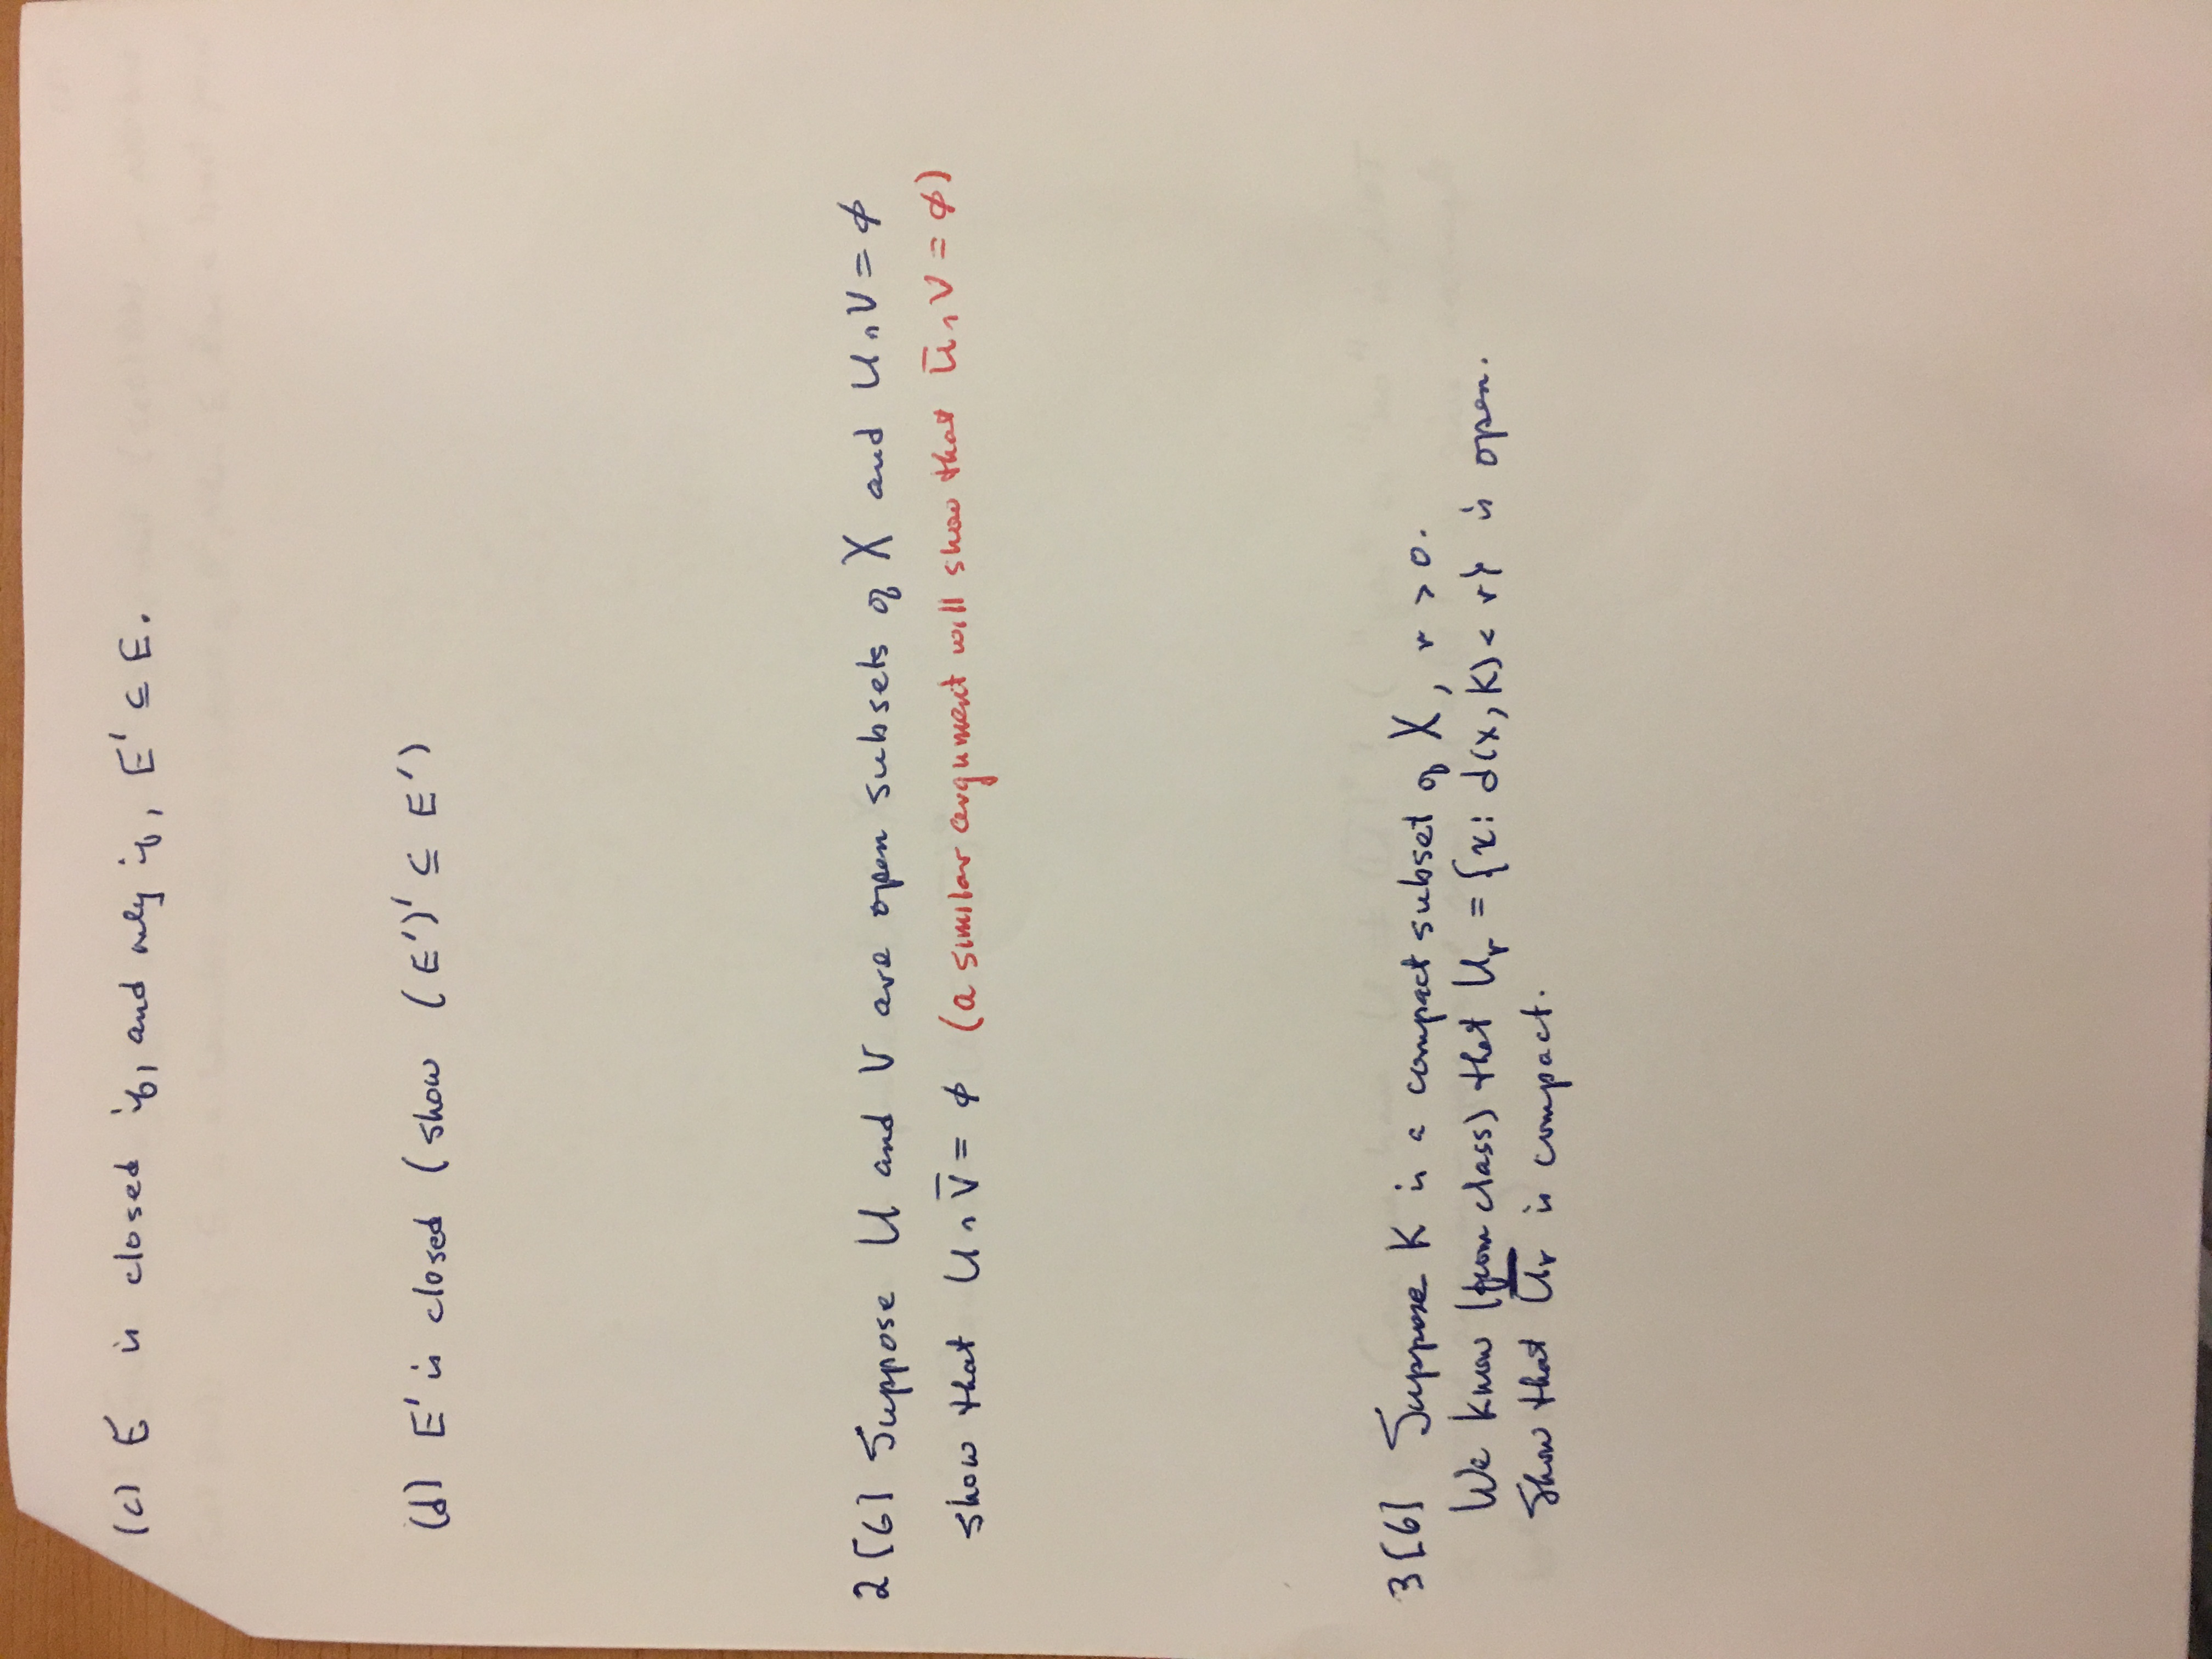 (c) E is closed if, and only if, E' ⊆ E.
(d) E' is closed (show (E')' ⊆ E')
2 [6] Suppose U and V are open subsets of X and U ∩ V = ϕ
show that U ∩ V̅ = ϕ (a similar argument will show that U̅ ∩ V = ϕ)
3 [6] Suppose K is a compact subset of X, r > 0.
We know (from class) that Uᵣ = {x: d(x, K) < r} is open.
Show that U̅ᵣ is compact.